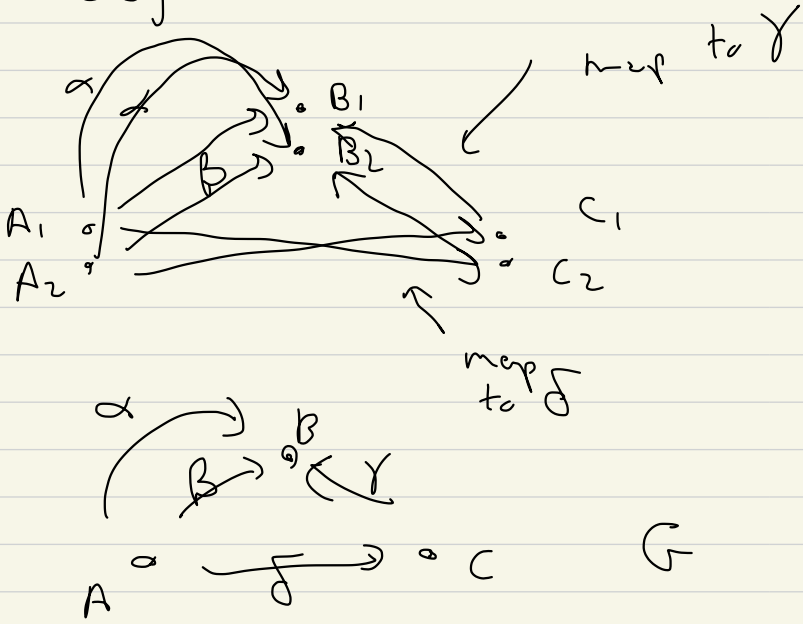 map to γ
α
α
B1
B2
β
A1
A2
C1
C2
map
to δ
α
B
β
γ
G
δ
C
A